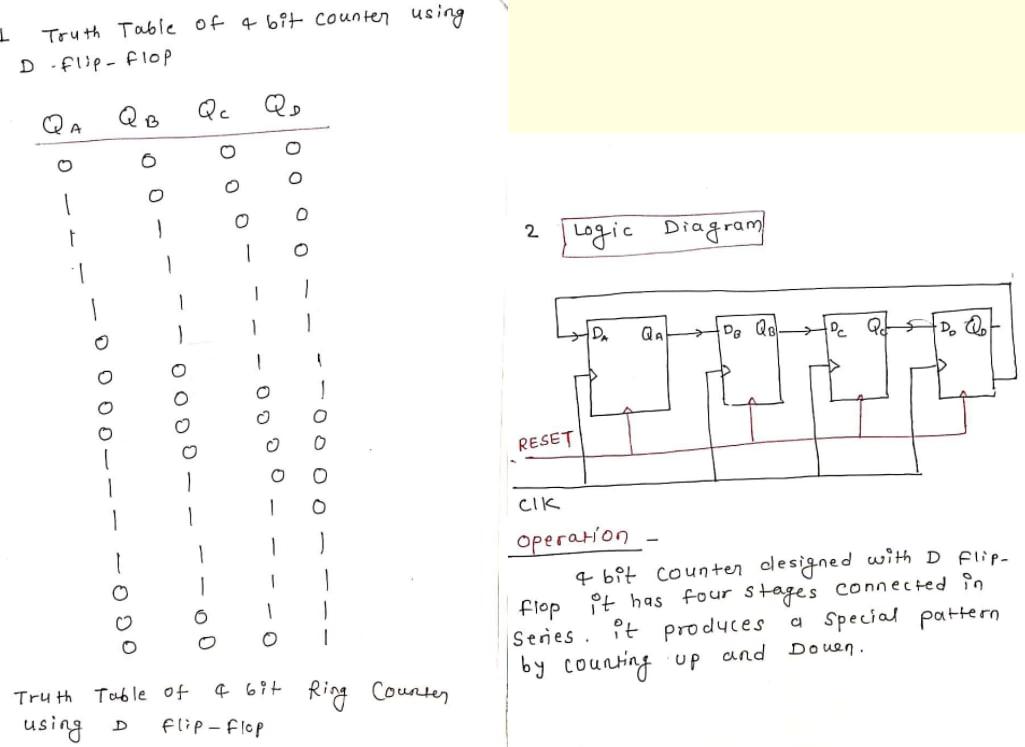 1 Truth Table of 4 bit counter using
D - flip - flop
QA QB Qc QD
0 0 0 0
1 0 0 0
1 1 0 0
1 1 1 0
1 1 1 1
0 1 1 1
0 0 1 1
0 0 0 1
0 0 0 0
1 0 0 0
1 1 0 0
1 1 1 0
1 1 1 1
0 1 1 1
0 0 1 1
0 0 0 1
Truth Table of 4 bit Ring Counter
using D flip - flop
2 Logic Diagram
DA QA DB QB DC QC DD QD
RESET
Clk
Operation -
4 bit counter designed with D flip-
flop it has four stages connected in
Series. it produces a special pattern
by counting up and Douen.